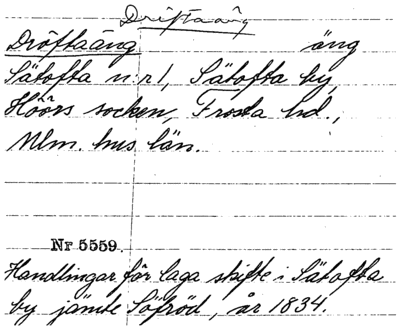 Driftaäng
Dröftaäng äng
Sätofta n:r 1, Sätofta by,
Höörs socken, Frosta hd.,
Mlm. hus län.
Nr 5559.
Handlingar för laga skifte i Sätofta
by jämte Söfröd, år 1834.